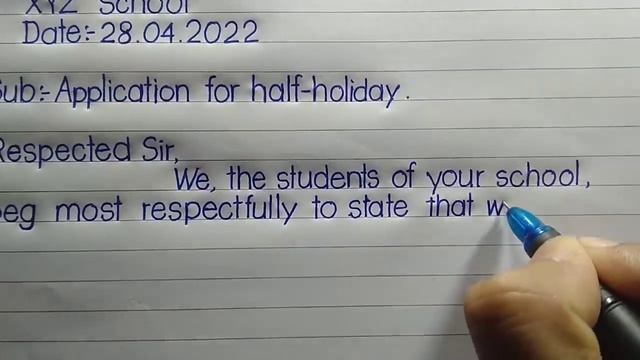 XYZ School
Date:-28.04.2022
Sub:-Application for half-holiday.
Respected Sir,
We, the students of your school,
beg most respectfully to state that w